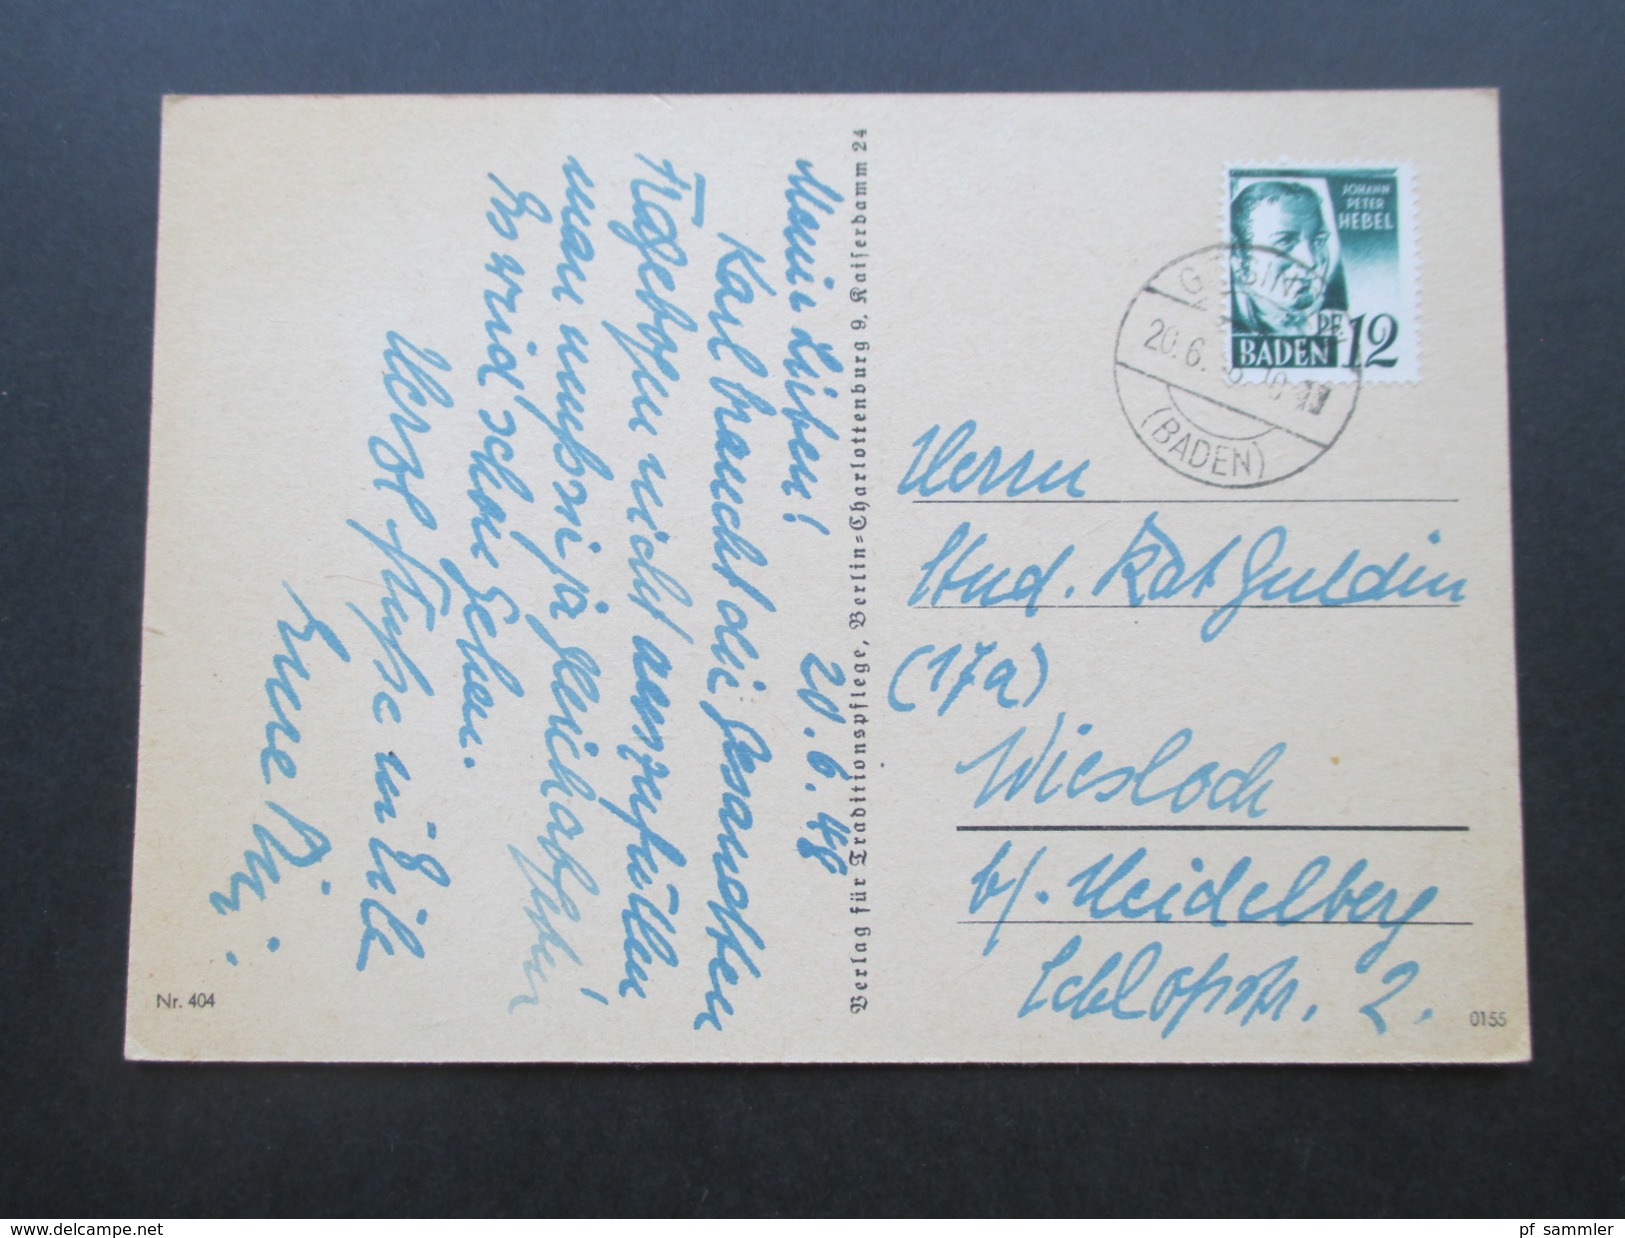 Meine Lieben! 20.6.48
Karl braucht die gesandten
Fragebogen nicht auszufüllen
man muß ja
Es wird schon gehen.
Herzl. Grüße in Eile
Eure
Verlag für Traditionspflege, Berlin=Charlottenburg 9, Kaiserdamm 24
Nr. 404
JOHANN
PETER
HEBEL
PF. 12
BADEN
20.6.
(BADEN)
Herrn
Stud. Rat Gulden
(17a)
Wiesloch
b/. Heidelberg
Schloßstr. 2.
0155
www.delcampe.net
pf_sammler